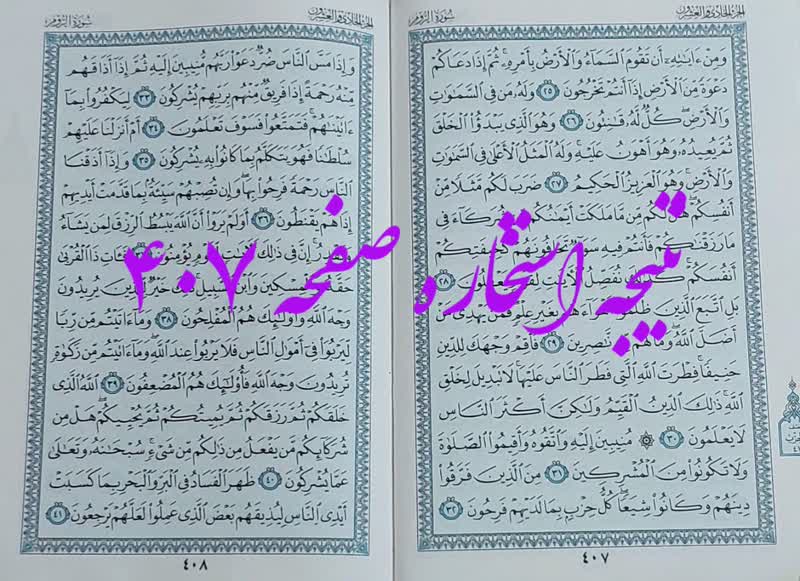 الجزء الحادي والعشرون
سورة الروم
وَمِنْ ءَايَٰتِهِۦٓ أَن تَقُومَ ٱلسَّمَآءُ وَٱلْأَرْضُ بِأَمْرِهِۦ ثُمَّ إِذَا دَعَاكُمْ
دَعْوَةً مِّنَ ٱلْأَرْضِ إِذَآ أَنتُمْ تَخْرُجُونَ ٢٥ وَلَهُۥ مَن فِى ٱلسَّمَٰوَٰتِ
وَٱلْأَرْضِ كُلٌّ لَّهُۥ قَٰنِتُونَ ٢٦ وَهُوَ ٱلَّذِى يَبْدَؤُا۟ ٱلْخَلْقَ
ثُمَّ يُعِيدُهُۥ وَهُوَ أَهْوَنُ عَلَيْهِ وَلَهُ ٱلْمَثَلُ ٱلْأَعْلَىٰ فِى ٱلسَّمَٰوَٰتِ
وَٱلْأَرْضِ وَهُوَ ٱلْعَزِيزُ ٱلْحَكِيمُ ٢٧ ضَرَبَ لَكُم مَّثَلًا مِّنْ
أَنفُسِكُمْ هَل لَّكُم مِّن مَّا مَلَكَتْ أَيْمَٰنُكُم مِّن شُرَكَآءَ فِى
مَا رَزَقْنَٰكُمْ فَأَنتُمْ فِيهِ سَوَآءٌ تَخَافُونَهُمْ كَخِيفَتِكُمْ
أَنفُسَكُمْ كَذَٰلِكَ نُفَصِّلُ ٱلْأَيَٰتِ لِقَوْمٍ يَعْقِلُونَ ٢٨
بَلِ ٱتَّبَعَ ٱلَّذِينَ ظَلَمُوٓا۟ أَهْوَآءَهُم بِغَيْرِ عِلْمٍ فَمَن يَهْدِى مَنْ
أَضَلَّ ٱللَّهُ وَمَا لَهُم مِّن نَّٰصِرِينَ ٢٩ فَأَقِمْ وَجْهَكَ لِلدِّينِ
حَنِيفًا فِطْرَتَ ٱللَّهِ ٱلَّتِى فَطَرَ ٱلنَّاسَ عَلَيْهَا لَا تَبْدِيلَ لِخَلْقِ
ٱللَّهِ ذَٰلِكَ ٱلدِّينُ ٱلْقَيِّمُ وَلَٰكِنَّ أَكْثَرَ ٱلنَّاسِ
لَا يَعْلَمُونَ ٣٠ ۞ مُنِيبِينَ إِلَيْهِ وَٱتَّقُوهُ وَأَقِيمُوا۟ ٱلصَّلَوٰةَ
وَلَا تَكُونُوا۟ مِنَ ٱلْمُشْرِكِينَ ٣١ مِنَ ٱلَّذِينَ فَرَّقُوا۟
دِينَهُمْ وَكَانُوا۟ شِيَعًا كُلُّ حِزْبٍۭ بِمَا لَدَيْهِمْ فَرِحُونَ ٣٢
٤٠٧
الجزء الحادي والعشرون
سورة الروم
وَإِذَا مَسَّ ٱلنَّاسَ ضُرٌّ دَعَوْا۟ رَبَّهُم مُّنِيبِينَ إِلَيْهِ ثُمَّ إِذَآ أَذَاقَهُم
مِّنْهُ رَحْمَةً إِذَا فَرِيقٌ مِّنْهُم بِرَبِّهِمْ يُشْرِكُونَ ٣٣ لِيَكْفُرُوا۟ بِمَآ
ءَاتَيْنَٰهُمْ فَتَمَتَّعُوا۟ فَسَوْفَ تَعْلَمُونَ ٣٤ أَمْ أَنزَلْنَا عَلَيْهِمْ
سُلْطَٰنًا فَهُوَ يَتَكَلَّمُ بِمَا كَانُوا۟ بِهِۦ يُشْرِكُونَ ٣٥ وَإِذَآ أَذَقْنَا
ٱلنَّاسَ رَحْمَةً فَرِحُوا۟ بِهَا وَإِن تُصِبْهُمْ سَيِّئَةٌۢ بِمَا قَدَّمَتْ أَيْدِيهِمْ
إِذَا هُمْ يَقْنَطُونَ ٣٦ أَوَلَمْ يَرَوْا۟ أَنَّ ٱللَّهَ يَبْسُطُ ٱلرِّزْقَ لِمَن يَشَآءُ
وَيَقْدِرُ إِنَّ فِى ذَٰلِكَ لَأَيَٰتٍ لِّقَوْمٍ يُؤْمِنُونَ ٣٧ فَـَٔاتِ ذَا ٱلْقُرْبَىٰ
حَقَّهُۥ وَٱلْمِسْكِينَ وَٱبْنَ ٱلسَّبِيلِ ذَٰلِكَ خَيْرٌ لِّلَّذِينَ يُرِيدُونَ
وَجْهَ ٱللَّهِ وَأُو۟لَٰٓئِكَ هُمُ ٱلْمُفْلِحُونَ ٣٨ وَمَآ ءَاتَيْتُم مِّن رِّبًا
لِّيَرْبُوَا۟ فِىٓ أَمْوَٰلِ ٱلنَّاسِ فَلَا يَرْبُوا۟ عِندَ ٱللَّهِ وَمَآ ءَاتَيْتُم مِّن زَكَوٰةٍ
تُرِيدُونَ وَجْهَ ٱللَّهِ فَأُو۟لَٰٓئِكَ هُمُ ٱلْمُضْعِفُونَ ٣٩ ٱللَّهُ ٱلَّذِى
خَلَقَكُمْ ثُمَّ رَزَقَكُمْ ثُمَّ يُمِيتُكُمْ ثُمَّ يُحْيِيكُمْ هَلْ مِن
شُرَكَآئِكُم مَّن يَفْعَلُ مِن ذَٰلِكُم مِّن شَىْءٍ سُبْحَٰنَهُۥ وَتَعَٰلَىٰ
عَمَّا يُشْرِكُونَ ٤٠ ظَهَرَ ٱلْفَسَادُ فِى ٱلْبَرِّ وَٱلْبَحْرِ بِمَا كَسَبَتْ
أَيْدِى ٱلنَّاسِ لِيُذِيقَهُم بَعْضَ ٱلَّذِى عَمِلُوا۟ لَعَلَّهُمْ يَرْجِعُونَ ٤١
٤٠٨
نتیجه استخاره صفحه ۴۰۷